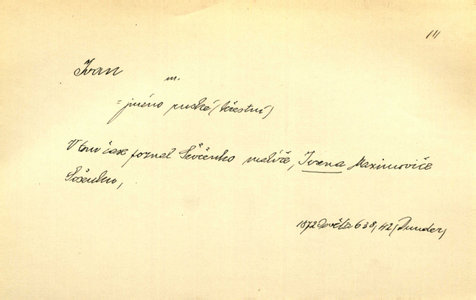 111
Ivan
m.
= jméno ruské (křestní)
V tom čase poznal Ševčenko malíře, Ivana Maximoviče
Sošenko,
1872 Světla 638, 42 (Dunder)